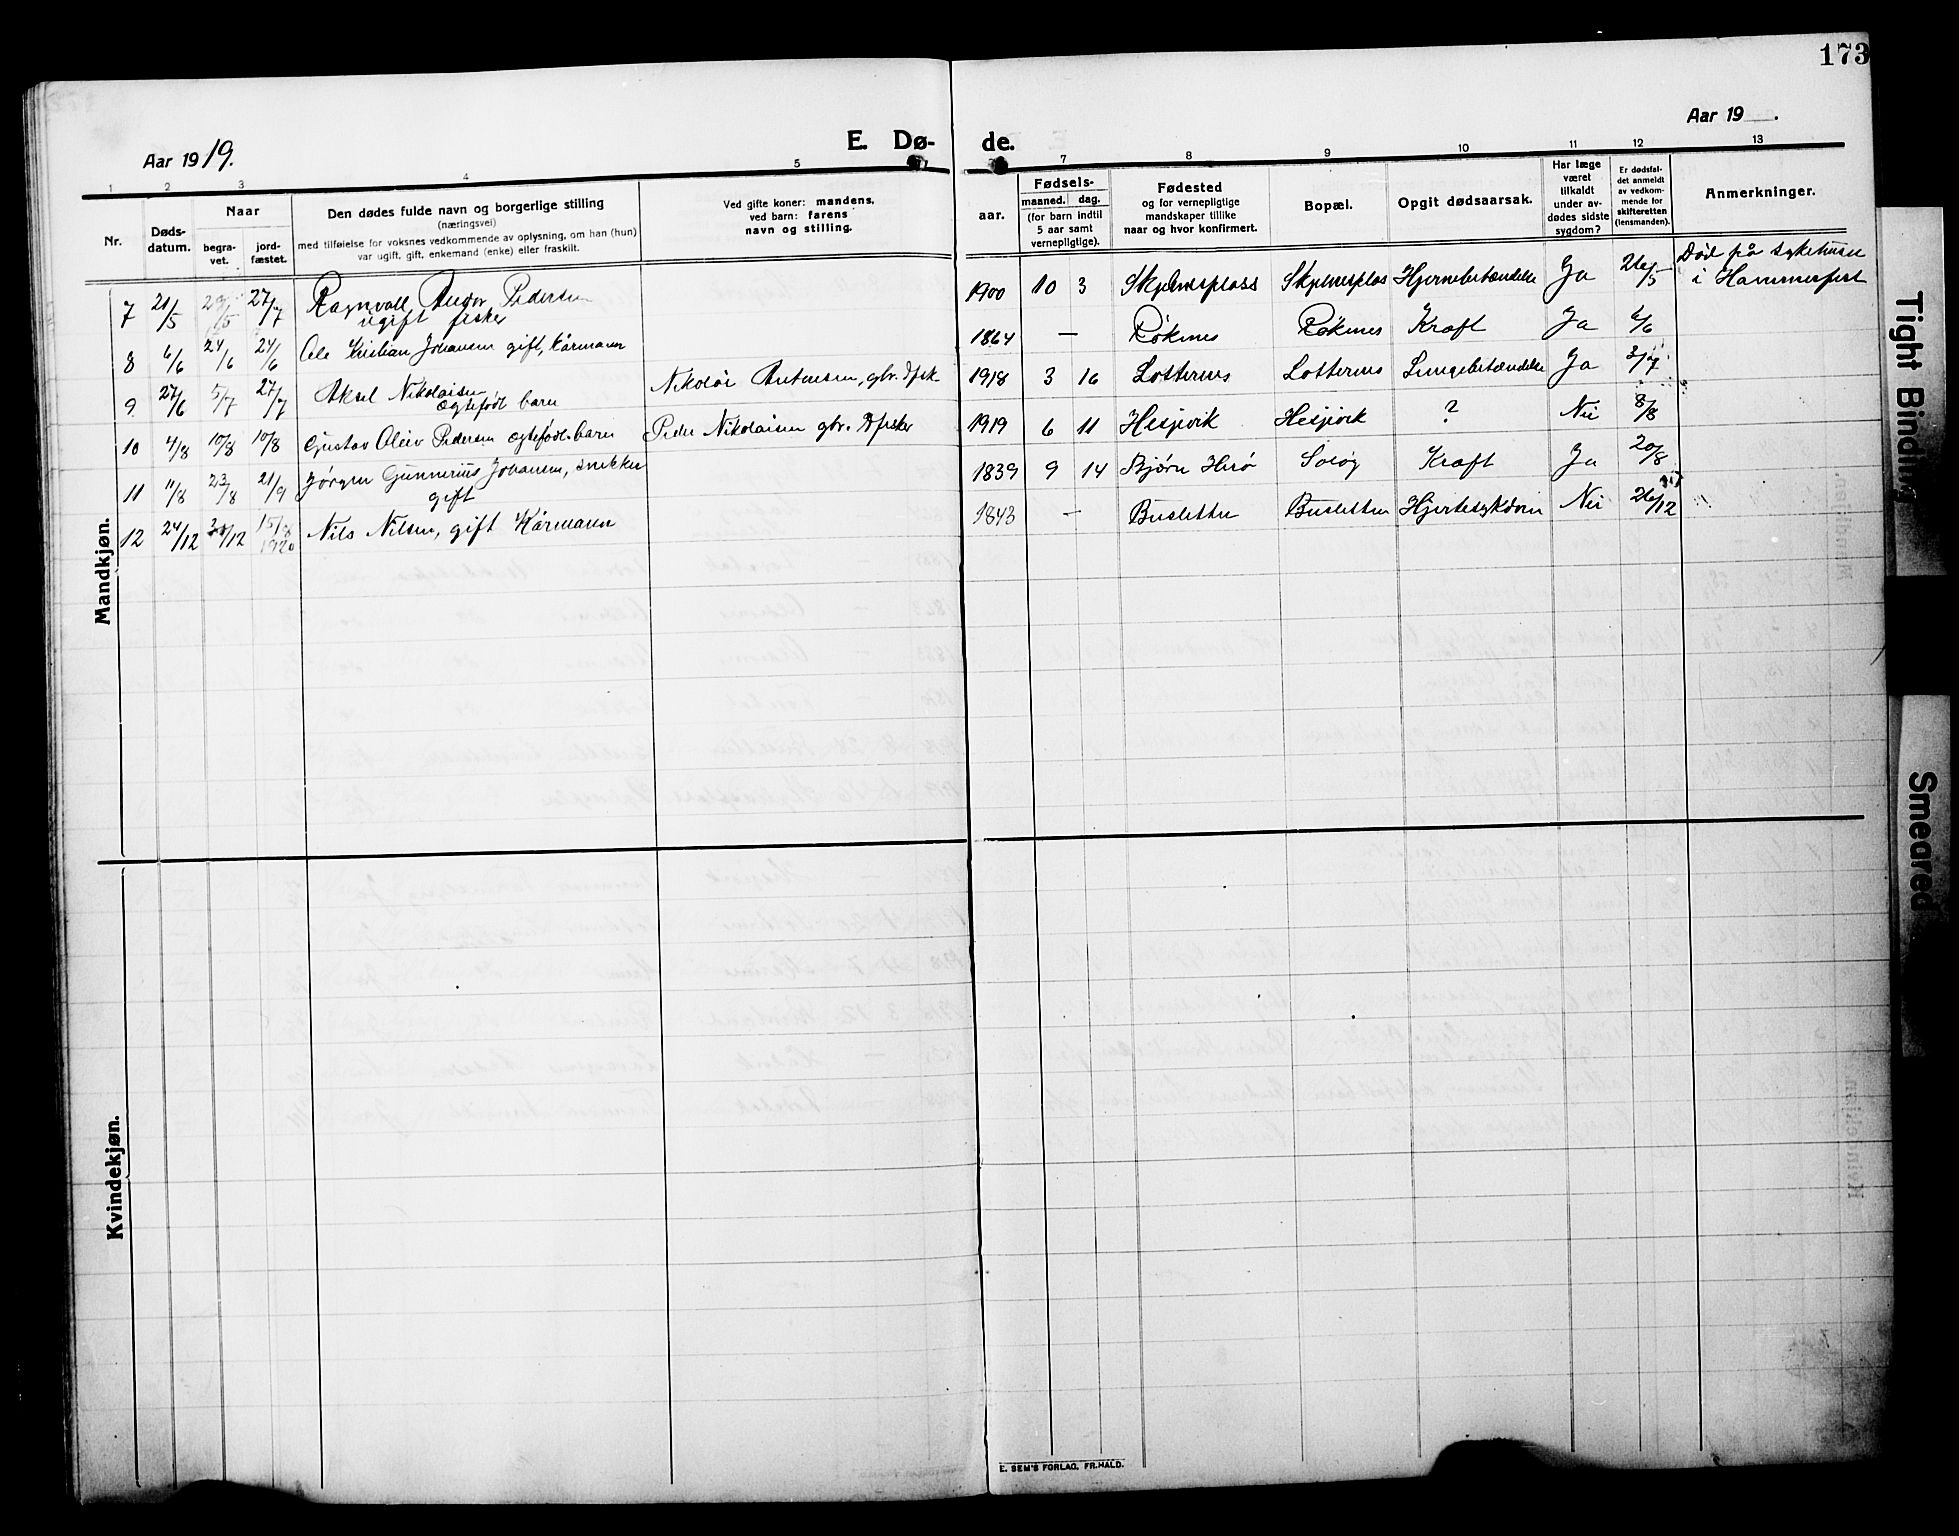 173
Aar 1919.
E. Dø-
de.
Aar 19 .
1 2 3 4 5 7 8 9 10 11 12 13
Nr.
Døds-
datum.
Naar
begra-
vet.
jord-
fæstet.
Den dødes fulde navn og borgerlige stilling
(næringsvei)
med tilføielse for voksnes vedkommende av oplysning, om han (hun)
var ugift, gift, enkemand (enke) eller fraskilt.
Ved gifte koner: mandens,
ved barn: farens
navn og stilling.
aar.
Fødsels-
maaned. dag.
(for barn indtil
5 aar samt
vernepligtige).
Fødested
og for vernepligtige
mandskaper tillike
naar og hvor konfirmert.
Bopæl.
Opgit dødsaarsak.
Har læge
været
tilkaldt
under av-
dødes sidste
sygdom?
Er dødsfal-
det anmeldt
av vedkom-
mende for
skifteretten
(lensmanden).
Anmerkninger.
Mandkjøn.
7 21/5 29/5 27/7 Ragnvall Andor Pedersen
ugift fisker
1900 10 3 Skjelnesplass Hjernebetændelse Ja 26/5 Død på sykehuset
i Hammerfest
8 6/6 24/6 24/6 Ole Kristian Johansen gift, kårmann
1864 — Røknes Røknes Kræft Ja 6/6
9 27/6 5/7 27/7 Aksel Nikolaisen
ægtefødt barn
Nikolai Antonsen, gbr. & fisk.
1918 3 16 Lotternes Lotternes Lungebetændelse Ja 3/7
10 4/8 10/8 10/8 Gustav Oleiv Pedersen ægtefødt barn Peder Nikolaisen gbr. & fisker
1919 6 11 Hesjevik Hesjevik ? Nei 8/8
11 11/8 23/8 21/9 Jørgen Gunnerius Johansen, snekker
gift
1839 9 14 Bjørn Herø Kræft Ja 20/8
12 24/12 /12 15/8
1920 Nils Nilsen, gift Kårmann
1843 — Busletten Busletten Hjertesykdom Nei 26/12
Kvindekjøn.
E. SEM'S FORLAG, FR.HALD.
Tight Binding
Smeared